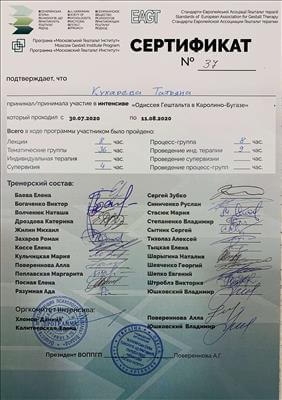 EAGT
Стандарты Европейской Ассоциации Гештальт терапии
Standards of European Association for Gestalt Therapy
Программа «Московский Гештальт Институт»
Moscow Gestalt Institute Program
Программа «Московский Гештальт Институт»
СЕРТИФИКАТ
№ 37
подтверждает, что
Кухарева Татьяна
принимал/принимала участие в интенсиве «Одиссея Гештальта в Каролино-Бугазе»
который проходил с 30.07.2020 по 11.08.2020
Всего в ходе программы участником было пройдено:
Лекции 8 час. Процесс-группа 8 час.
Тематические группы 36 час. Проведение инд. терапии 9 час.
Индивидуальная терапия час. Проведение супервизии час.
Супервизия 4 час. Процесс-терапия час.
Тренерский состав:
Баева Елена Сергей Зубко
Богаченко Виктор Синиченко Руслан
Волченок Наташа Стасюк Мария
Дроздова Катерина Степаненко Владимир
Жилин Михаил Сытник Сергей
Захаров Роман Тихолаз Алексей
Коссе Елена Тыцкая Елена
Кульчицкая Мария Царыгина Наталия
Поверенова Алла Шевченко Георгий
Поплавская Маргарита Шепко Евгений
Посная Елена Штробля Виктория
Разумная Ада Юшковский Владимир
Оргкомитет Интенсива:
Хломов Даниил Поверенова Алла
Калитеевская Елена Юшковский Владимир
Президент ВОППГП Поверенова А.Г.